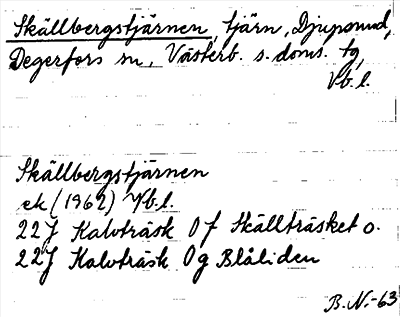 Skällbergstjärnen, tjärn, Djupsund,
Degerfors sn, Västerb. s. doms. tg,
Vb. l.
Skällbergstjärnen
ek (1962) Vb. l.
22J Kalvträsk 0f Skällträsket o.
22J Kalvträsk 0g Blåliden
B. N. -63